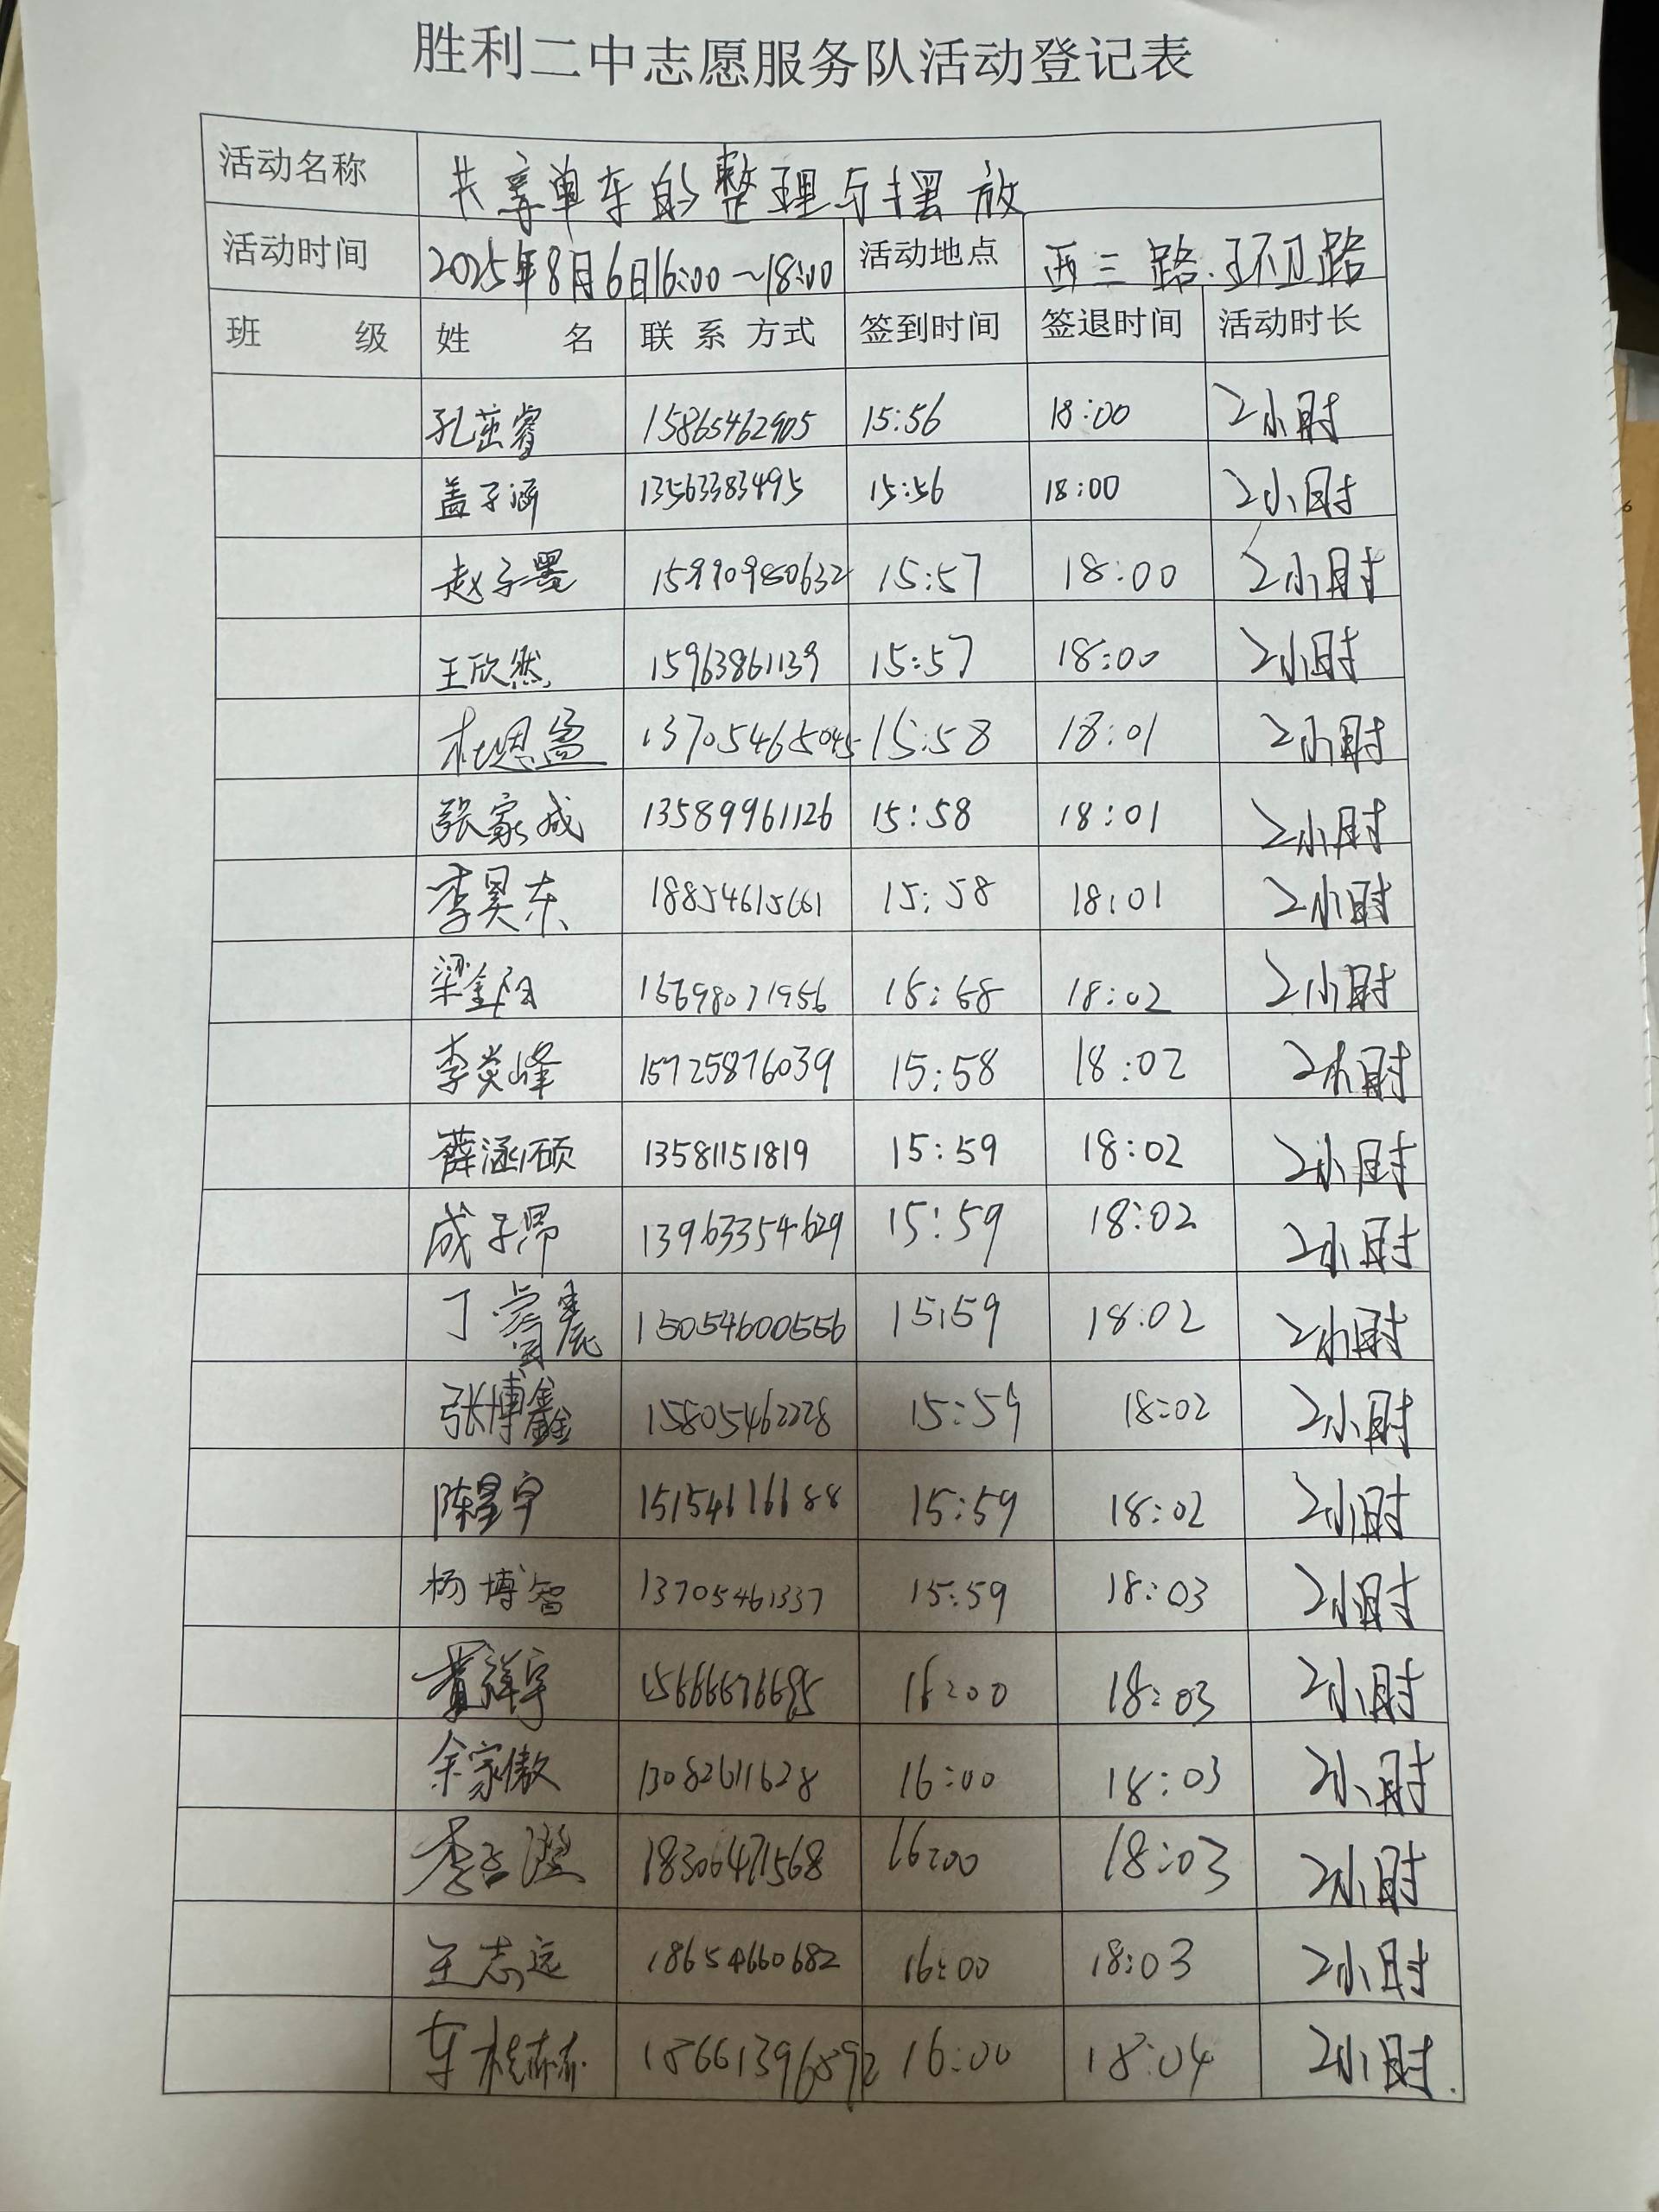 胜利二中志愿服务队活动登记表
活动名称 共享单车的整理与摆放
活动时间 2025年8月6日16:00～18:00 活动地点 西三路.环卫路
班 级 姓 名 联系方式 签到时间 签退时间 活动时长
孔茁睿 15865462905 15:56 18:00 2小时
盖子涵 13563383495 15:56 18:00 2小时
赵子墨 15990980632 15:57 18:00 2小时
王欣然 15963861139 15:57 18:00 2小时
杜恩盈 13705465045 15:58 18:01 2小时
张家成 13589961126 15:58 18:01 2小时
李昊东 18854615661 15:58 18:01 2小时
梁金阳 15698071956 15:58 18:02 2小时
李炎峰 15725876039 15:58 18:02 2小时
薛涵硕 13581151819 15:59 18:02 2小时
成子昂 13963354629 15:59 18:02 2小时
丁 15054600556 15:59 18:02 2小时
张博鑫 15805462228 15:59 18:02 2小时
陈星宇 15154616188 15:59 18:02 2小时
杨博智 13705461337 15:59 18:03 2小时
黄祥宇 16:00 18:03 2小时
余家傲 13082611628 16:00 18:03 2小时
李 18306471568 16:00 18:03 2小时
王志远 18654660682 16:00 18:03 2小时
车 18661396892 16:00 18:04 2小时.